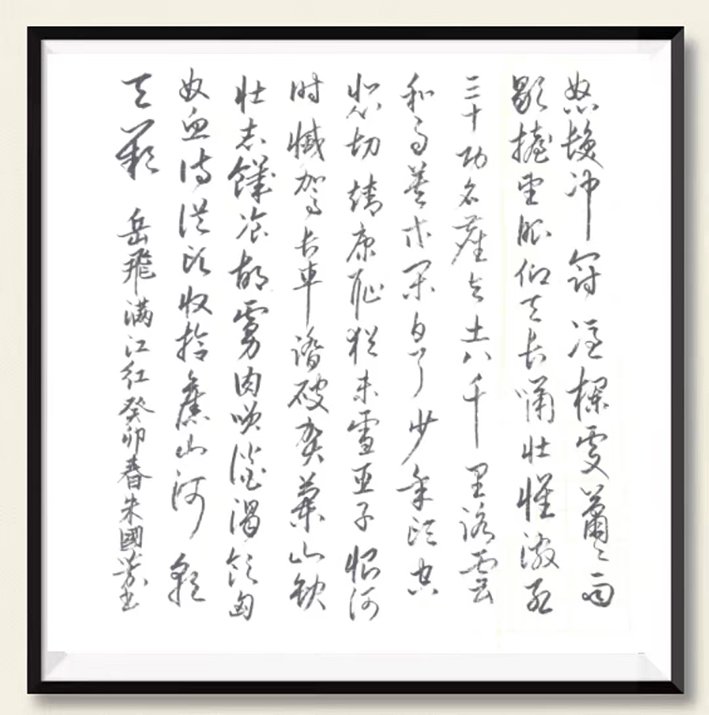 怒髮冲冠凭欄處蕭々雨
歇擡望眼仰天长嘯壯懷激烈
三十功名塵与土八千里路雲
和月莫等闲白了少年头空
悲切靖康恥猶未雪臣子恨何
时憾駕长車踏破賀蘭山缺
壮志饑飡胡虜肉笑談渴飲匈
奴血待從头收拾舊山河朝
天闕 岳飛满江红癸卯春朱國芳书